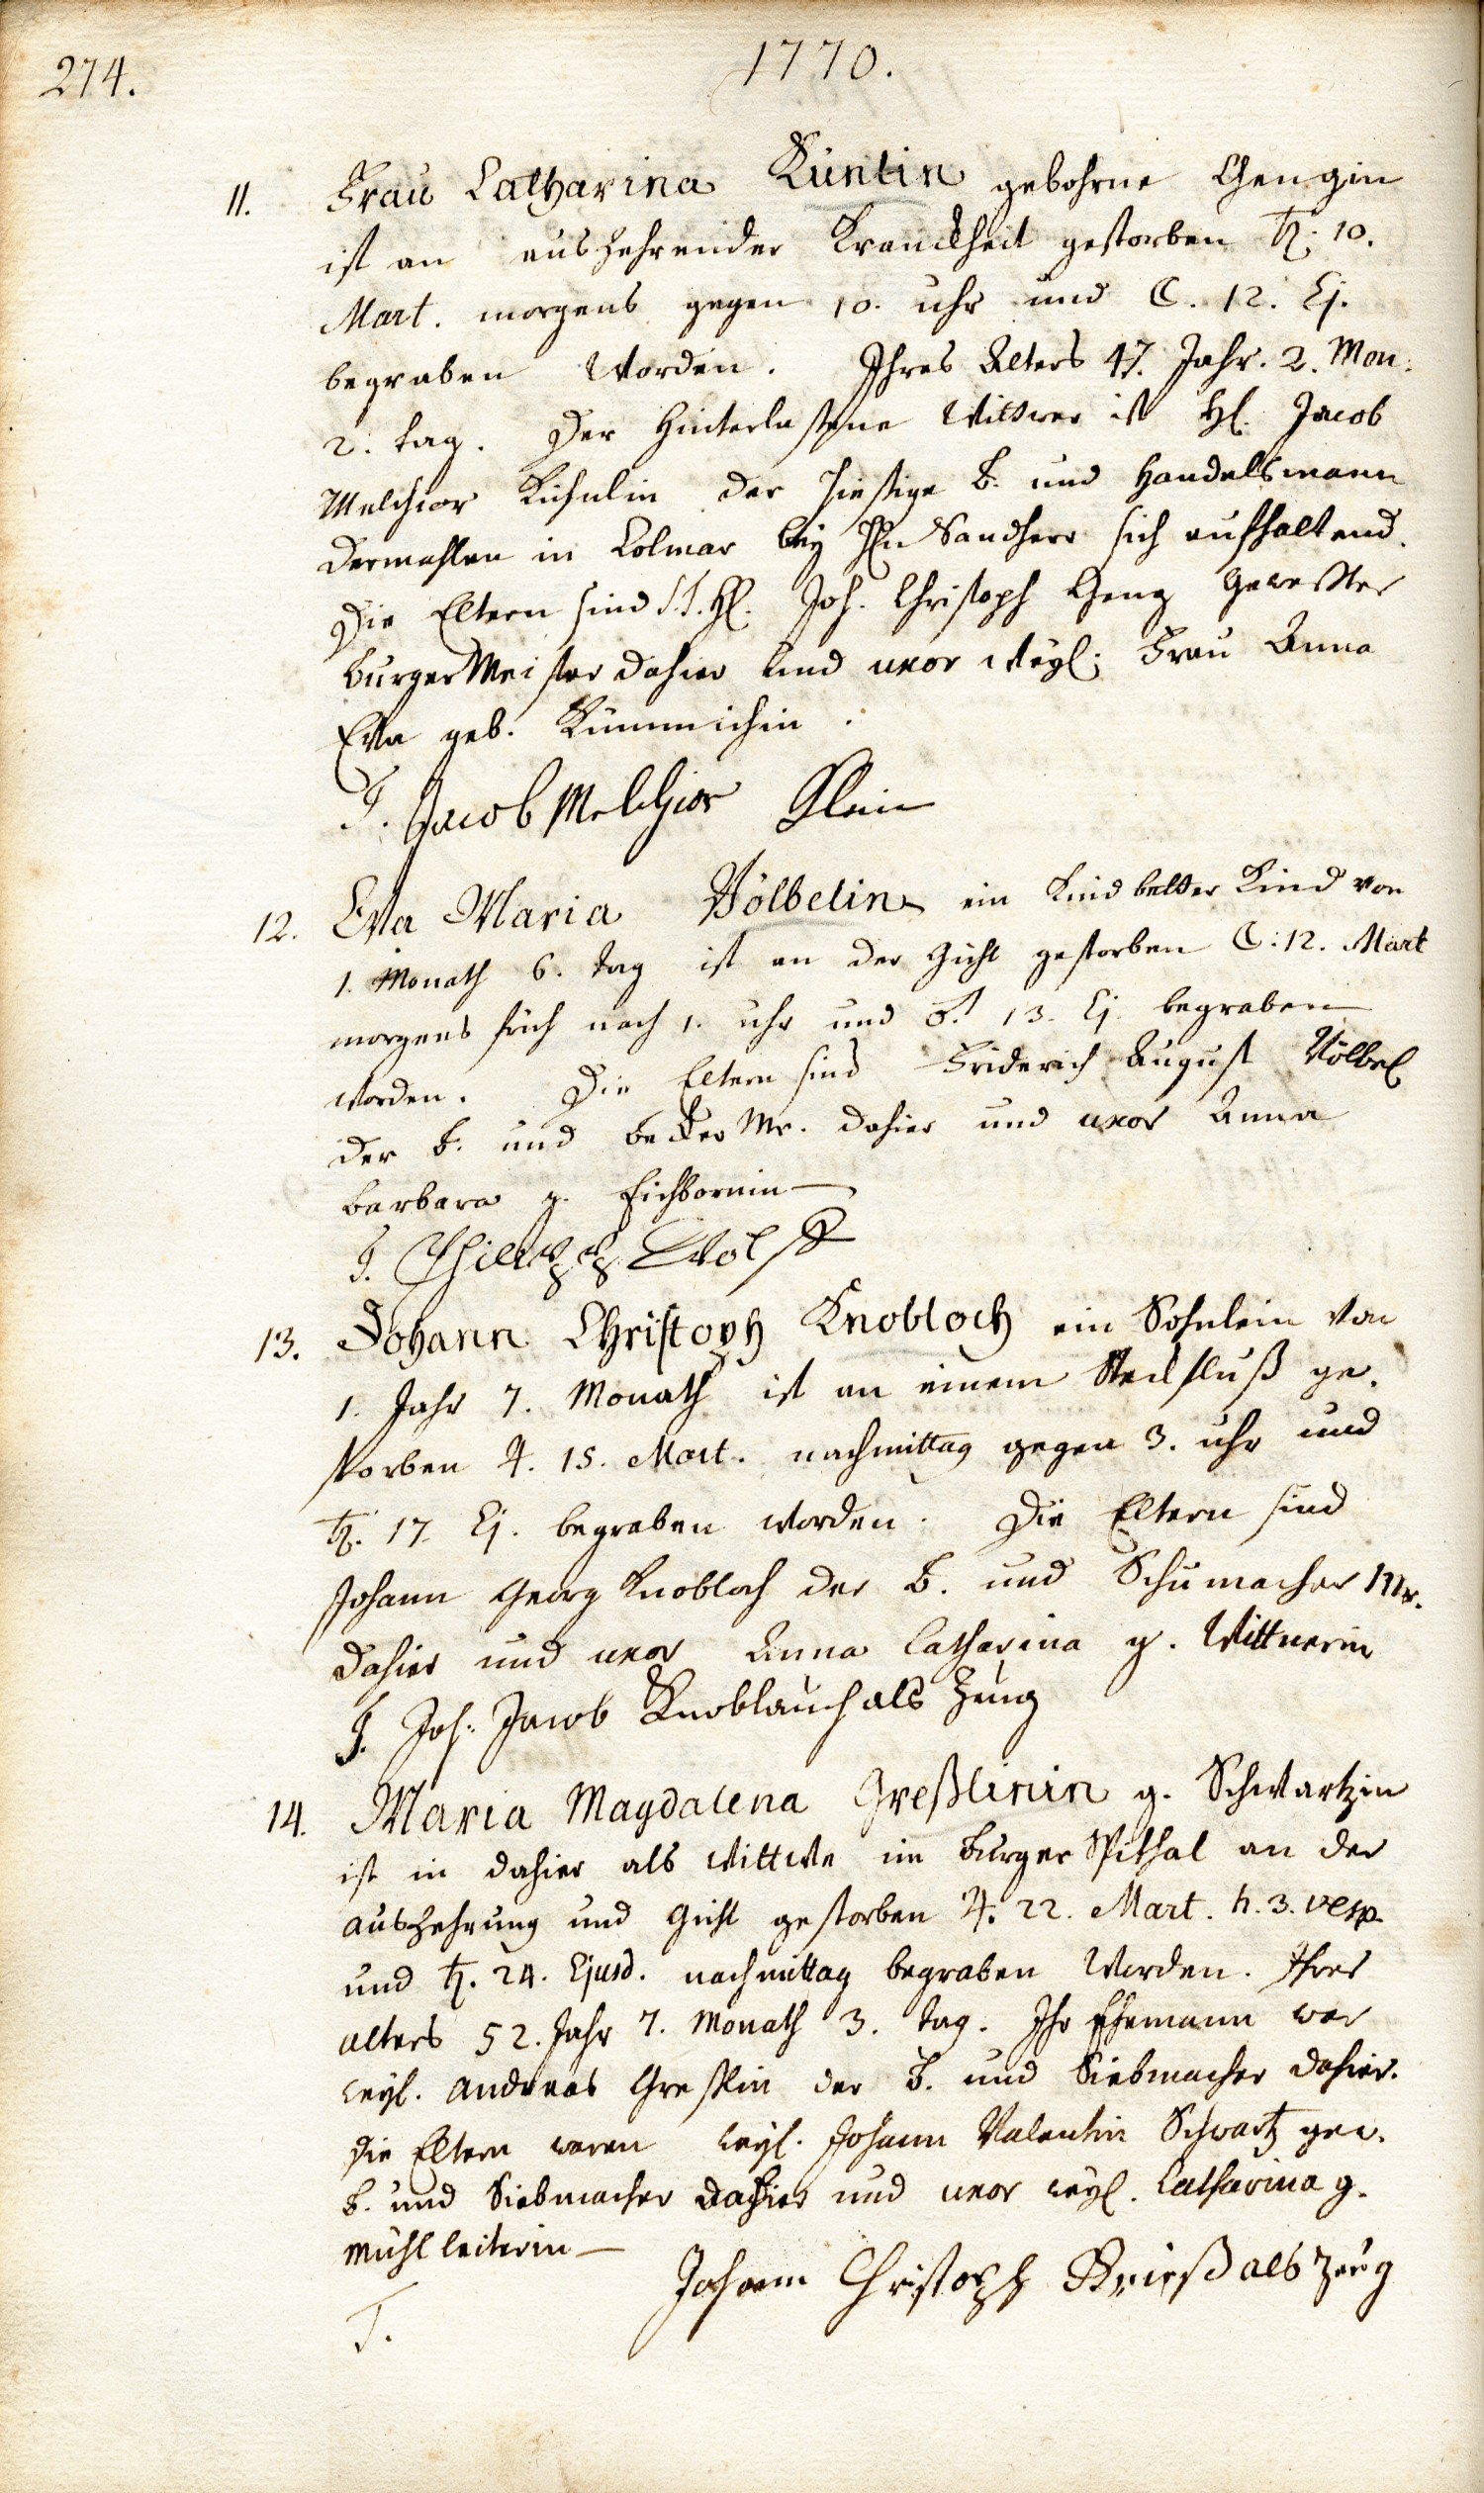 274.
1770.
11. Frau Catharina Küntin gebohrne Gengin
ist an auszehrender Kranckheit gestorben ♄. 10.
Mart. morgens gegen 10. uhr und ☾. 12. Ej.
begraben worden. Ihres Alters 47. Jahr. 2. Mon.
2. tag. Der hinterlaßene Wittwer ist H. Jacob
Melchior der hießige B. und Handelsmann
dermahlen in Colmar bey Hn Sandherr sich aufhaltend.
Die Eltern sind S.T. H. Joh. Christoph Geng gewester
Burger Meister dahier und uxor weyl. Frau Anna
Eva geb. Kümmichin.
T. Jacob Melchior
12. Eva Maria Völbelin ein Kindbetter Kind von
1. Monath 6. tag ist an der Gicht gestorben ☾. 12. Mart
morgens früh nach 1. uhr und ♂. 13. Ej. begraben
worden. Die Eltern sind Friderich August Völbel
der B. und Becker Mr. dahier und uxor Anna
Barbara g. Eichbornin
T. Philipp Wolff
13. Johann Christoph Knobloch ein Söhnlein von
1. Jahr 7. Monath ist an einem Steckfluß ge-
storben ♃. 15. Mart. nachmittag gegen 3. uhr und
♄. 17. Ej. begraben worden. Die Eltern sind
Johann Georg Knobloch der B. und Schumacher Mr.
dahier und uxor Anna Catharina g. Wittnerin
T. Joh. Jacob Knoblauch als Zeug
14. Maria Magdalena Greßlinin g. Schwartzin
ist in dahier als Wittwe im Burger Spithal an der
auszehrung und Gicht gestorben ♃. 22. Mart. h. 3. vesp.
und ♄. 24. Ejusd. nachmittag begraben worden. Ihres
alters 52. Jahr 7. Monath 3. tag. Ihr Ehemann war
weyl. Andreas Greßlin der B. und Siebmacher dahier.
die Eltern waren weyl. Johann Valentin Schwartz gew.
B. und Siebmacher dahier und uxor weyl. Catharina g.
Mühlleiterin
T. Johann Christoph Brieß als Zeug